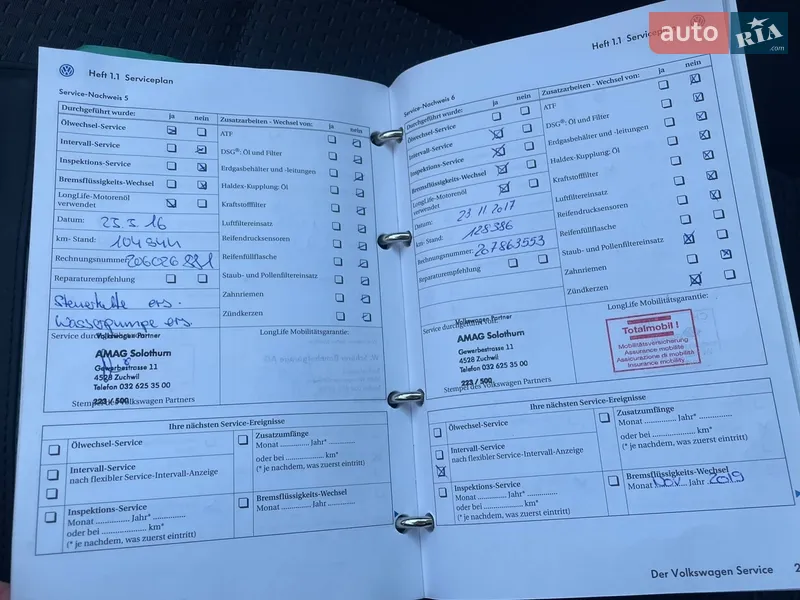 auto RIA.com
Heft 1.1 Serviceplan
Service-Nachweis 5
Durchgeführt wurde: ja nein
Ölwechsel-Service
Intervall-Service
Inspektions-Service
Bremsflüssigkeits-Wechsel
LongLife-Motorenöl
verwendet
Datum: 23.3.16
km- Stand: 104844
Rechnungsnummer: 206026881
Reparaturempfehlung
Steuerkette ers.
Wasserpumpe ers.
Zusatzarbeiten - Wechsel von: ja nein
ATF
DSG®: Öl und Filter
Erdgasbehälter und -leitungen
Haldex-Kupplung: Öl
Kraftstofffilter
Luftfiltereinsatz
Reifendrucksensoren
Reifenfüllflasche
Staub- und Pollenfiltereinsatz
Zahnriemen
Zündkerzen
Volkswagen Partner
AMAG Solothurn
Gewerbestrasse 11
4528 Zuchwil
Telefon 032 625 35 00
223 / 500
Stempel des Volkswagen Partners
LongLife Mobilitätsgarantie:
Ihre nächsten Service-Ereignisse
Ölwechsel-Service
Intervall-Service
nach flexibler Service-Intervall-Anzeige
Inspektions-Service
Monat ............... Jahr* ...............
oder bei ............................ km*
(* je nachdem, was zuerst eintritt)
Zusatzumfänge
Monat ............... Jahr* ...............
oder bei ............................ km*
(* je nachdem, was zuerst eintritt)
Bremsflüssigkeits-Wechsel
Monat ............... Jahr ...............
Heft 1.1 Serviceplan
Service-Nachweis 6
Durchgeführt wurde: ja nein
Ölwechsel-Service
Intervall-Service
Inspektions-Service
Bremsflüssigkeits-Wechsel
LongLife-Motorenöl
verwendet
Datum: 23 11 2017
km- Stand: 128386
Rechnungsnummer: 207863553
Reparaturempfehlung
Zusatzarbeiten - Wechsel von: ja nein
ATF
DSG®: Öl und Filter
Erdgasbehälter und -leitungen
Haldex-Kupplung: Öl
Kraftstofffilter
Luftfiltereinsatz
Reifendrucksensoren
Reifenfüllflasche
Staub- und Pollenfiltereinsatz
Zahnriemen
Zündkerzen
Volkswagen Partner
Service durchgeführt von:
AMAG Solothurn
Gewerbestrasse 11
4528 Zuchwil
Telefon 032 625 35 00
223 / 500
Stempel des Volkswagen Partners
LongLife Mobilitätsgarantie:
Totalmobil !
Mobilitätsversicherung
Assurance mobilité
Assicurazione di mobilità
Insurance mobility
Ihre nächsten Service-Ereignisse
Ölwechsel-Service
Intervall-Service
nach flexibler Service-Intervall-Anzeige
Inspektions-Service
Monat ............... Jahr* ...............
oder bei ............................ km*
(* je nachdem, was zuerst eintritt)
Zusatzumfänge
Monat ............... Jahr* ...............
oder bei ............................ km*
(* je nachdem, was zuerst eintritt)
Bremsflüssigkeits-Wechsel
Monat Nov. Jahr 2019
Der Volkswagen Service